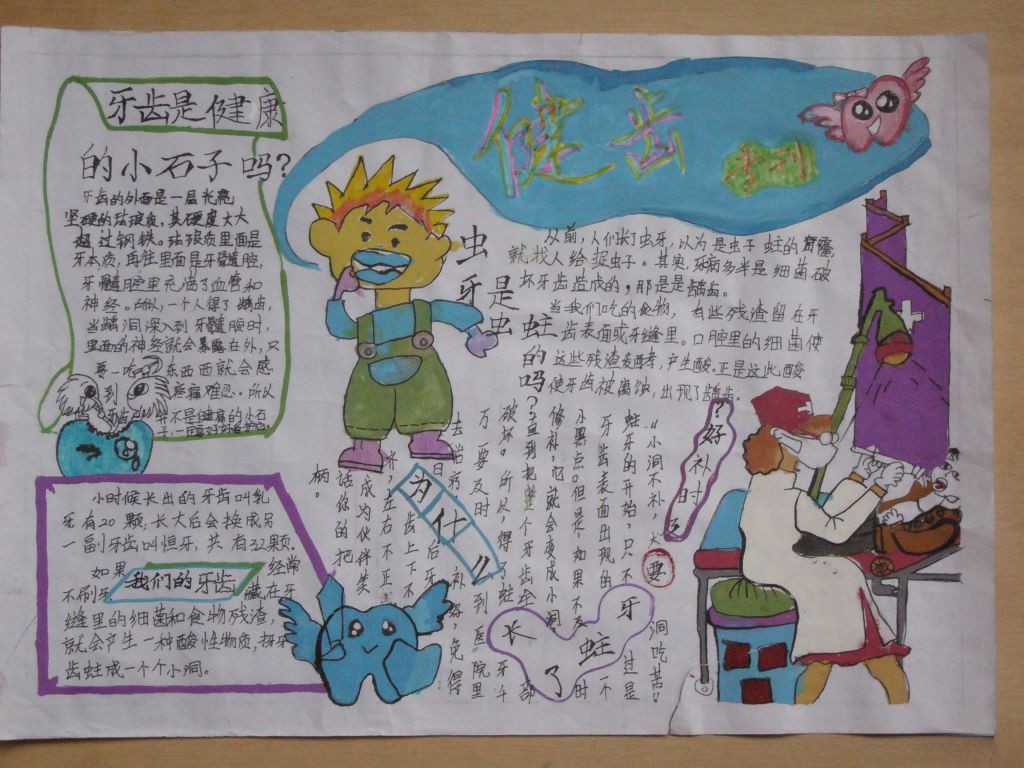 健齿
专刊
牙齿是健康
的小石子吗?
牙齿的外面是一层光亮
坚硬的珐琅质,其硬度大大
超过钢铁。珐琅质里面是
牙本质,再往里面是牙髓腔,
牙髓腔里充满了血管和
神经。所以,一个人得了龋齿,
当龋洞深入到牙髓腔时,
里面的神经就会暴露在外,只
要一吃东西西就会感
到疼痛难忍。所以
并不是健康的小石
虫牙是虫蛀的吗?
从前,人们长了虫牙,以为是虫子蛀的
就找人给捉虫子。其实,牙病多半是细菌破
坏牙齿造成的,那是是龋齿。
当我们吃的食物,有些残渣留在牙
齿表面或牙缝里。口腔里的细菌使
这些残渣发酵,产生酸。正是这些酸
使牙齿被腐蚀,出现了龋齿。
小时候长出的牙齿叫乳
牙有20颗,长大后会换成另
一副牙齿叫恒牙,共有32颗。
如果
经常
我们的牙齿
不刷牙
藏在牙
缝里的细菌和食物残渣,
就会产生一种酸性物质,将牙
齿蛀成一个个小洞。
为什
牙长了蛀
要
好补时
?
"小洞不补,大洞吃苦"
蛀牙的开始,只不过是
牙齿表面出现的不
小黑点。但是,如果不及时
修补,它就会变成小洞
直到把整个牙齿全部
破坏。所以,得了蛀牙千
万要及时到医院里
去治
补
免得
日后牙
齿上下不
齐,左右不正
成为伙伴笑
话你的把
柄。